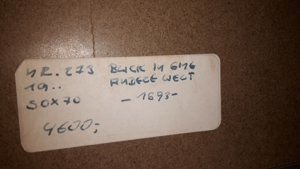 NR. 273 BLICK IN EINE
19.. ANDERE WELT
50X70 - 1693-
4600,-